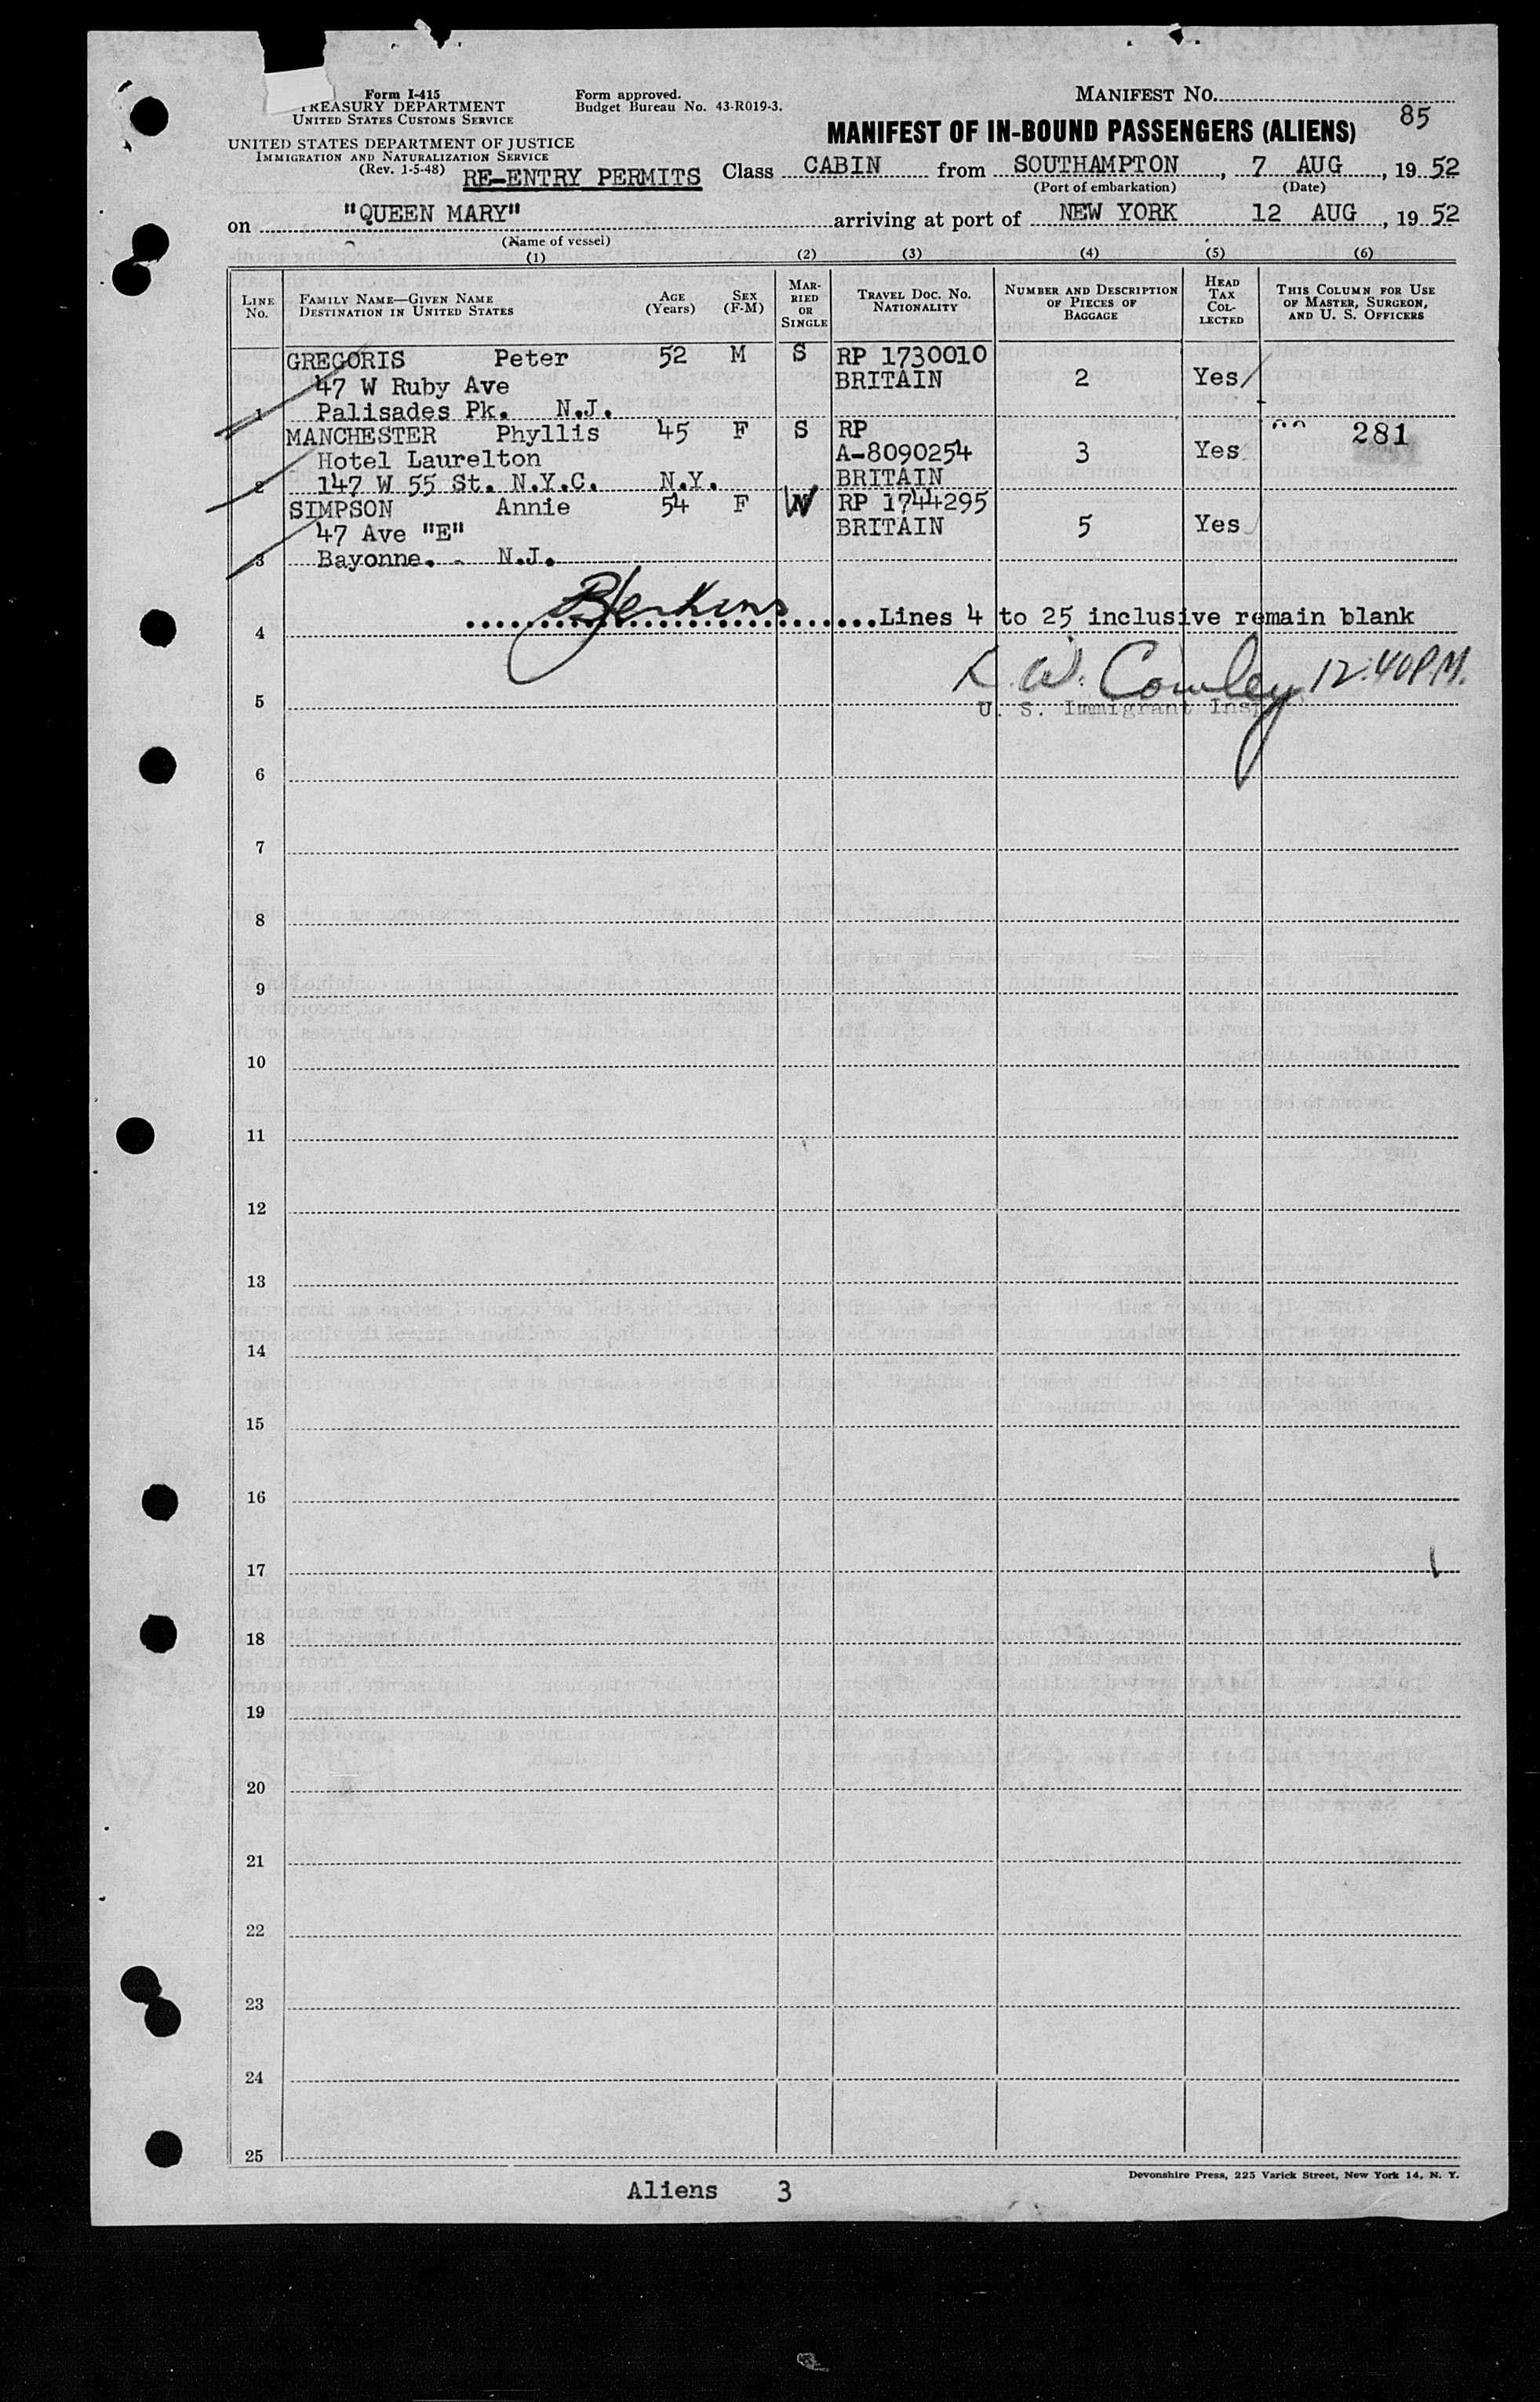 Form I-415
TREASURY DEPARTMENT
UNITED STATES CUSTOMS SERVICE
UNITED STATES DEPARTMENT OF JUSTICE
IMMIGRATION AND NATURALIZATION SERVICE
(Rev. 1-5-48)
Form approved.
Budget Bureau No. 43-R019-3.
MANIFEST No.
85
MANIFEST OF IN-BOUND PASSENGERS (ALIENS)
RE-ENTRY PERMITS Class CABIN from SOUTHAMPTON, 7 AUG, 1952
(Port of embarkation) (Date)
on "QUEEN MARY" arriving at port of NEW YORK 12 AUG, 1952
(Name of vessel)
(1) (2) (3) (4) (5) (6)
LINE No.
FAMILY NAME—GIVEN NAME
DESTINATION IN UNITED STATES
AGE (Years)
SEX (F-M)
MARRIED OR SINGLE
TRAVEL DOC. NO.
NATIONALITY
NUMBER AND DESCRIPTION OF PIECES OF BAGGAGE
HEAD TAX COLLECTED
THIS COLUMN FOR USE OF MASTER, SURGEON, AND U. S. OFFICERS
GREGORIS Peter 52 M S RP 1730010
47 W Ruby Ave BRITAIN 2 Yes
1 Palisades Pk. N.J.
MANCHESTER Phyllis 45 F S RP 281
Hotel Laurelton A-8090254 3 Yes
2 147 W 55 St. N.Y.C. N.Y. BRITAIN
SIMPSON Annie 54 F W RP 1744295
47 Ave "E" BRITAIN 5 Yes
3 Bayonne. - N.J.
4 Lines 4 to 25 inclusive remain blank
Cowley 12:40 P.M.
5 U. S. Immigrant Insp
6
7
8
9
10
11
12
13
14
15
16
17
18
19
20
21
22
23
24
25
Devonshire Press, 225 Varick Street, New York 14, N. Y.
Aliens 3